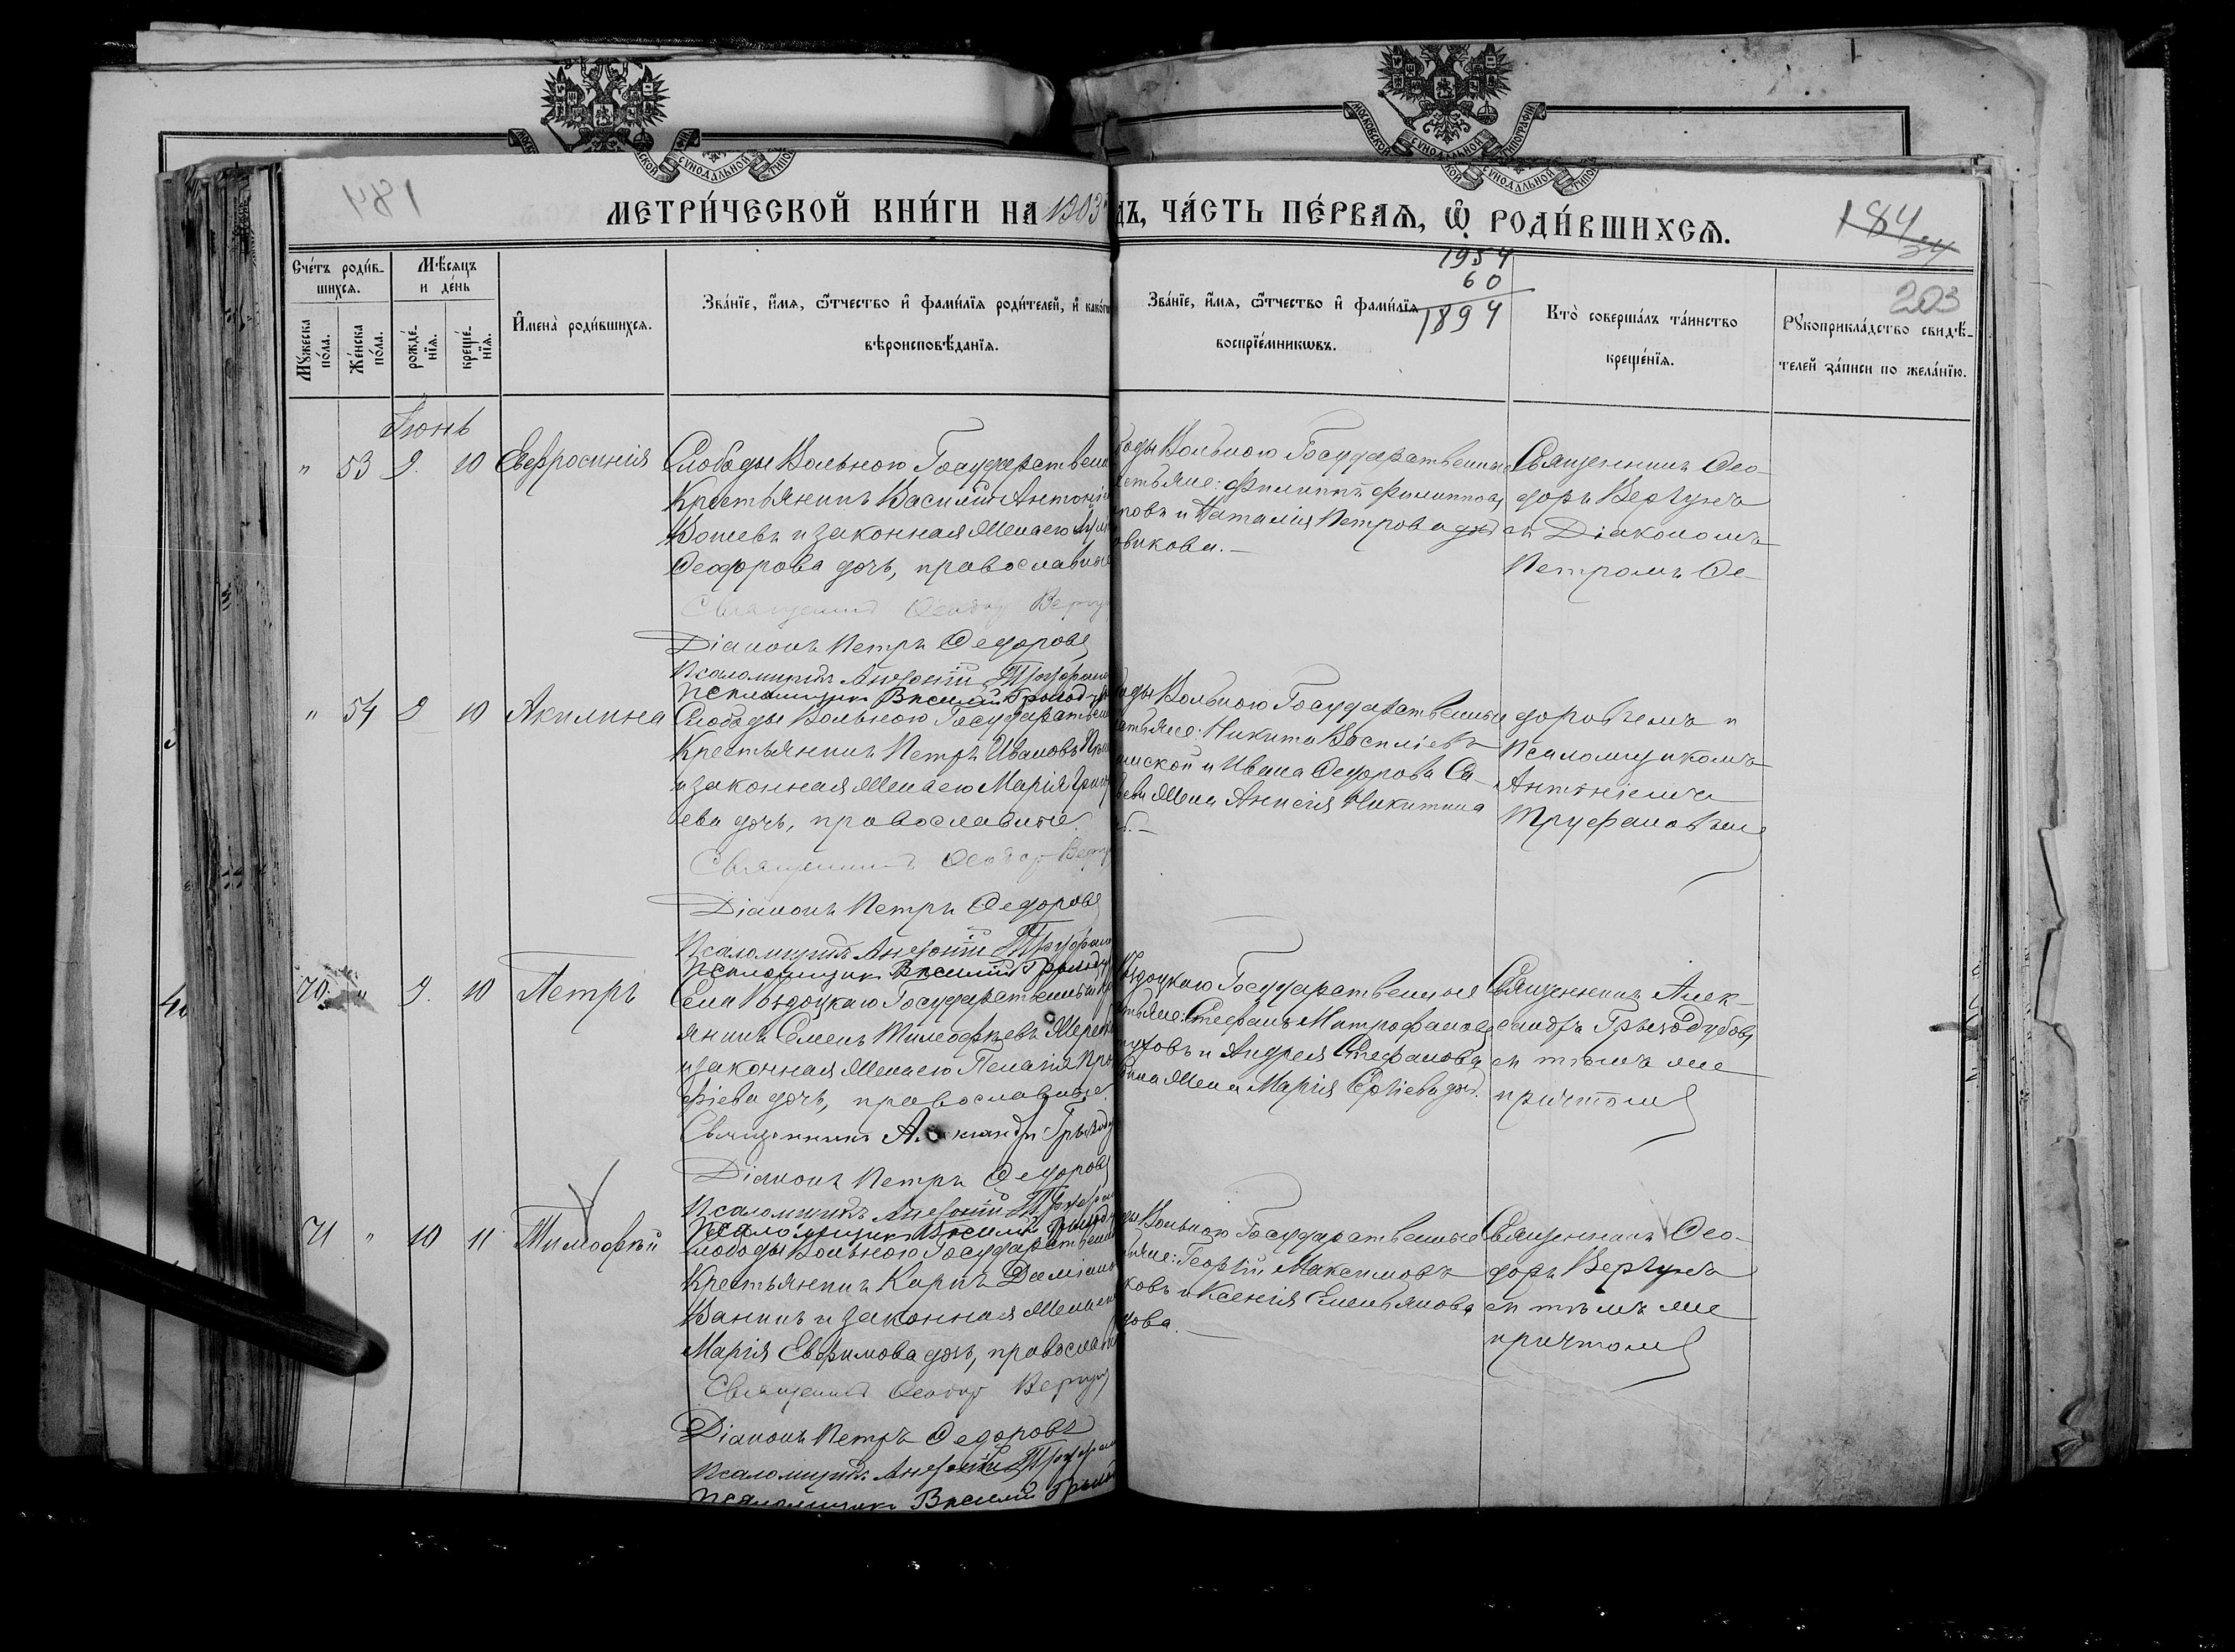 184
МЕТРИ́ЧЕСКОЙ КНИ́ГИ НА 1903
ДЪ, ЧА́СТЬ ПЕ́РВАѦ, Ѡ҆ РОДИ́ВШИХСѦ.
184
34
203
1954
60
1894
Сче́тъ роди́в-
шихсѧ.
Мѣ́сѧцъ
и де́нь
Мꙋ́жеска
по́ла.
Же́нска
по́ла.
рожде́-
нїѧ.
креще́-
нїѧ.
И҆мена̀ роди́вшихсѧ.
Зва́нїе, и҆́мѧ, ѻ҆́тчество и҆ фами́лїѧ роди́телей, и҆ како́гѡ
вѣроисповѣ́данїѧ.
Зва́нїе, и҆́мѧ, ѻ҆́тчество и҆ фами́лїѧ
воспрїе́мникѡвъ.
Кто̀ соверша́лъ та́инство
креще́нїѧ.
Рꙋкоприкла́дство свидѣ́-
телей за́писи по жела́нїю.
Іюнь
" 53 9. 10 Евфросинія
Слободы Вольного Государствен
Крестьянинъ Василій Антоніе
и законная жена его
Феодорова дочь, православные
Священникъ Феодор Вергун
Діаконъ Петръ Федоровъ
Псаломщикъ Антоній Труфано
Псаломщикъ Василій Грызод
боды Вольного Государственные
стьяне: Филиппъ Филиппов
ровъ и Наталія Петрова
овикова. —
Священникъ Фео-
доръ Вергунъ
съ Діакономъ
Петромъ Фе-
" 54 9 10 Акилина
Слободы Вольного Государствен
Крестьянинъ Петръ Ивановъ
и законная жена его Марія Григор
ева дочь, православные.
Священникъ Феодор Вергу
Діаконъ Петръ Федоровъ
Псаломщикъ Антоній Труфано
Псаломщикъ Василій Грызоду
боды Вольного Государственные
стьяне: Никита Василіевъ
и Ивана Федорова Са-
жена Анисія Никитина
доровымъ и
Псаломщикомъ
Антоніемъ
Труфановымъ
70. " 9. 10 Петръ
Села Государственный
янинъ Семенъ Тимофѣевъ
и законная жена его Пелагія Про
фіева дочь, православные.
Священникъ Александръ Грызоду
Діаконъ Петръ Федоровъ
Псаломщикъ Антоній Труфано
Псаломщикъ Василій Грызоду
Государственные
стьяне: Стефанъ Митрофанов
и Андрея Стефанова
жена Марія
Священникъ Алек-
сандръ Грызодубовъ
съ тѣмъ же
причтомъ
71 " 10 11 Тимофѣй
Слободы Вольного Государствен
Крестьянинъ Карпъ Даміано
Ванинъ и законная жена его
Марія Евфимова дочь, православн
Священникъ Феодор Вергун
Діаконъ Петръ Федоровъ
Псаломщикъ Антоній Труфано
Псаломщикъ Василій Грызо
ды Вольного Государственные
стьяне: Георгій Максимовъ
ковъ и Ксенія Емельянова
Священникъ Фео-
доръ Вергунъ
съ тѣмъ же
причтомъ